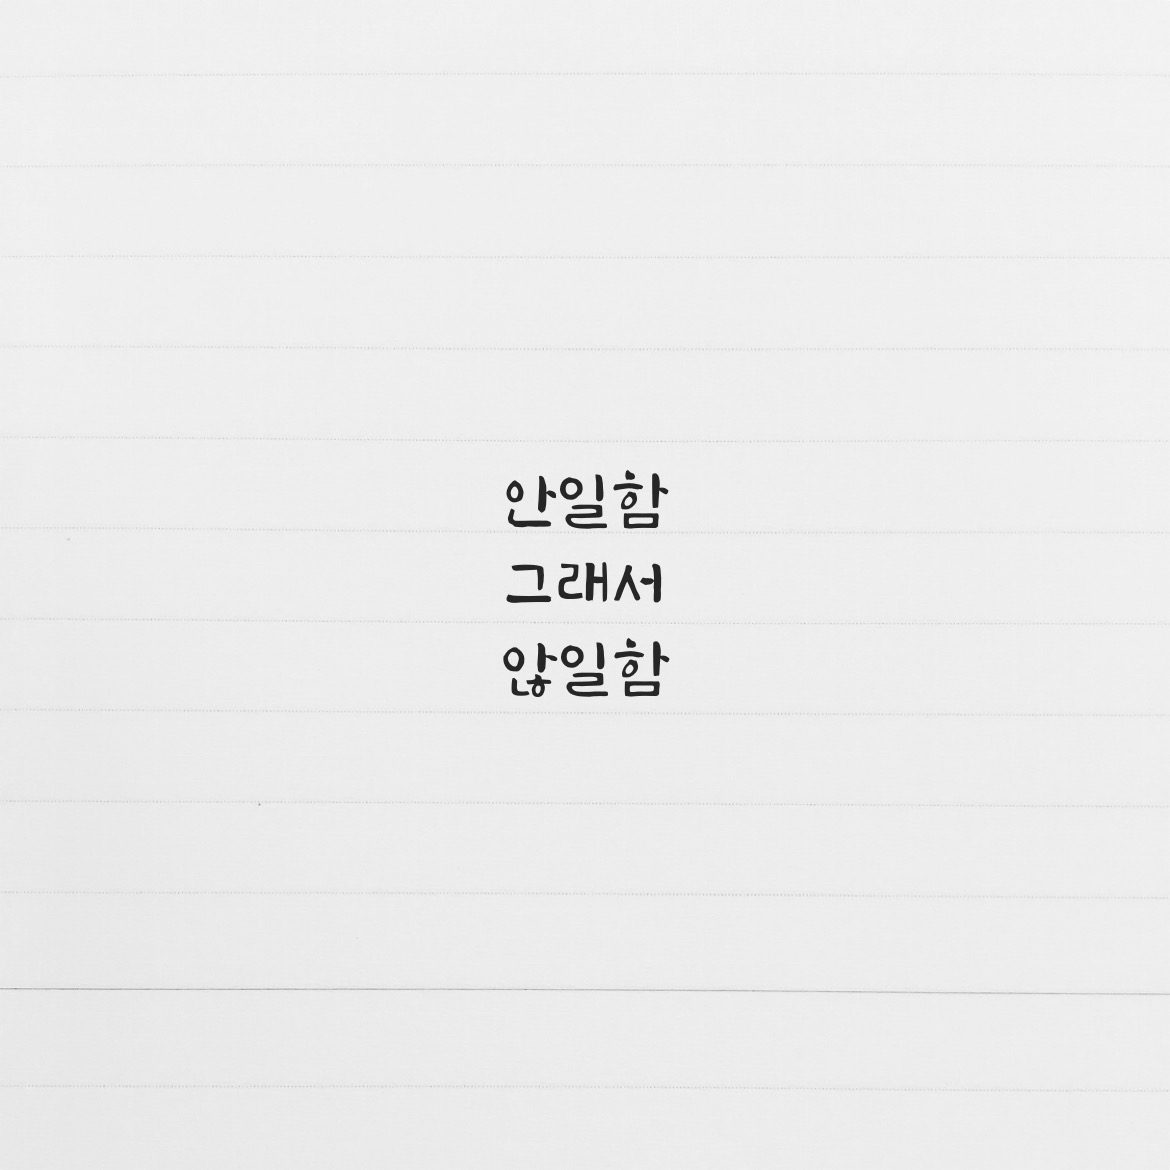 안일함
그래서
않일함